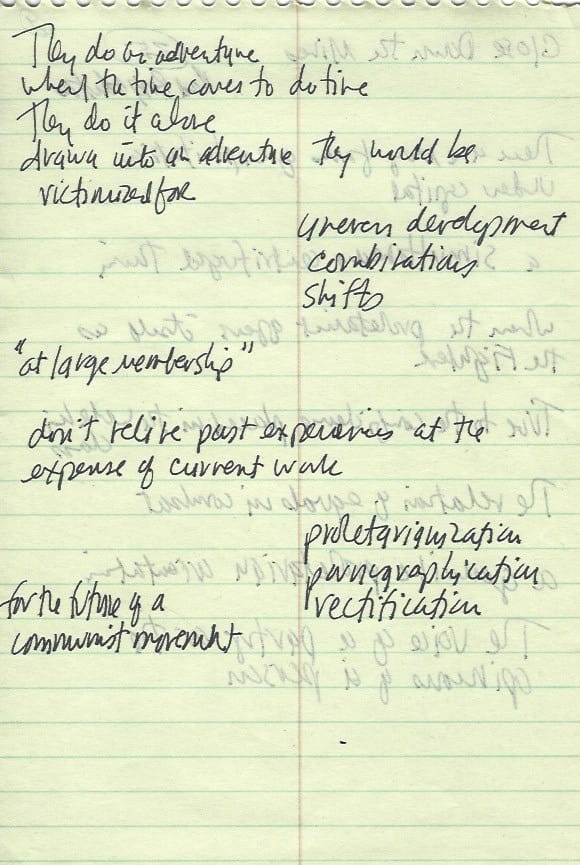 They do an adventure
when the time comes to do time
They do it alone
drawn into an adventure They would be
victimized for
uneven development
combinations
shifts
"at large membership"
don't relive past experiences at the
expense of current work
proletarianization
pornographication
rectification
for the future of a
communist movement